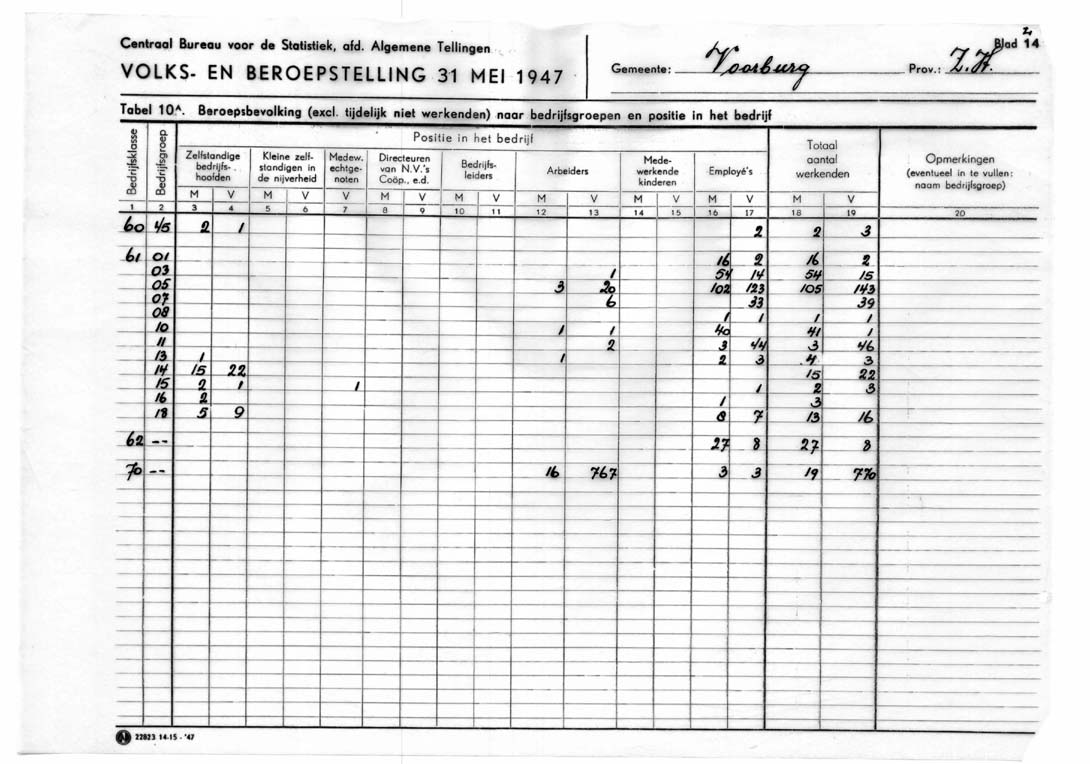 2
Blad 14
Centraal Bureau voor de Statistiek, afd. Algemene Tellingen
VOLKS- EN BEROEPSTELLING 31 MEI 1947
Gemeente: Voorburg Prov.: Z.H.
Tabel 10A. Beroepsbevolking (excl. tijdelijk niet werkenden) naar bedrijfsgroepen en positie in het bedrijf
Bedrijfsklasse Bedrijfsgroep Positie in het bedrijf Totaal aantal werkenden Opmerkingen (eventueel in te vullen: naam bedrijfsgroep)
Zelfstandige bedrijfs-hoofden Kleine zelf-standigen in de nijverheid Medew. echtge-noten Directeuren van N.V.'s Coöp., e.d. Bedrijfs-leiders Arbeiders Mede-werkende kinderen Employé's
M V M V V M V M V M V M V M V M V
1 2 3 4 5 6 7 8 9 10 11 12 13 14 15 16 17 18 19 20
60 45 2 1 2 2 3
61 01 16 2 16 2
03 1 54 14 54 15
05 3 20 102 123 105 143
07 6 33 39
08 1 1 1 1
10 1 1 40 41 1
11 2 3 44 3 46
13 1 1 2 3 4 3
14 15 22 15 22
15 2 1 1 1 2 3
16 2 1 3
18 5 9 8 7 13 16
62 -- 27 8 27 8
70 -- 16 767 3 3 19 770
22823 14-15 - '47